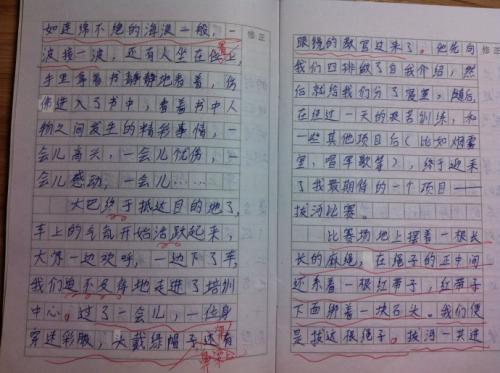 如连绵不绝的海浪一般，一
波接一波，还有人坐在位置上，
手里拿着书静静地看着，仿
佛进入了书中，看着书中人
物之间发生的精彩事情，一
会儿高兴，一会儿忧伤，一
会儿感动，一会儿……
大巴终于抵达目的地了，
车上的气氛开始活跃起来，
大家一边欢呼，一边下了车，
我们迫不及待地走进了培训
中心。过了一会儿，一位身
穿迷彩服，头戴绿帽子还有
修正
眼镜的教官过来了。他先向
我们四排做了自我介绍，然
后就给我们分了寝室。随后，
在经过一天的艰苦训练，和
一些其他项目后（比如烟雾
室，唱军歌等），终于迎来
了我最期待的一个项目——
拔河比赛。
比赛场地上摆着一根长
长的麻绳，在绳子的正中间
还系着一根红带子，红带子
下面绑着一块石头。我们便
是拔这根绳子。拔河一共进
修正